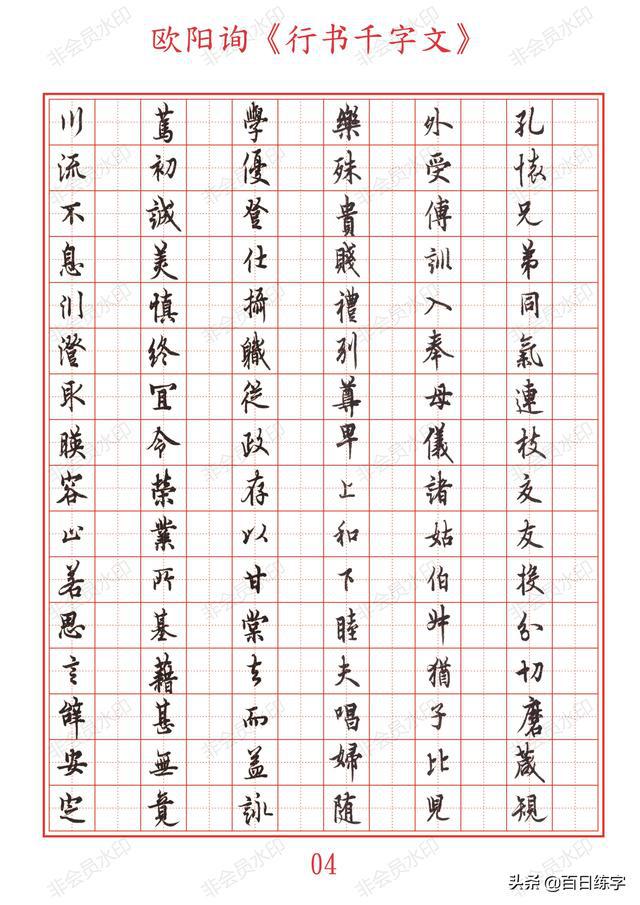 欧阳询《行书千字文》
川流不息渊澄取暎容止若思言辭安定
篤初誠美慎終宜令榮業所基藉甚無竟
學優登仕攝職從政存以甘棠去而益詠
樂殊貴賤禮别尊卑上和下睦夫唱婦随
外受傅訓入奉母儀諸姑伯叔猶子比兒
孔懐兄弟同氣連枝交友投分切磨箴規
04
头条 @百日练字
非会员水印